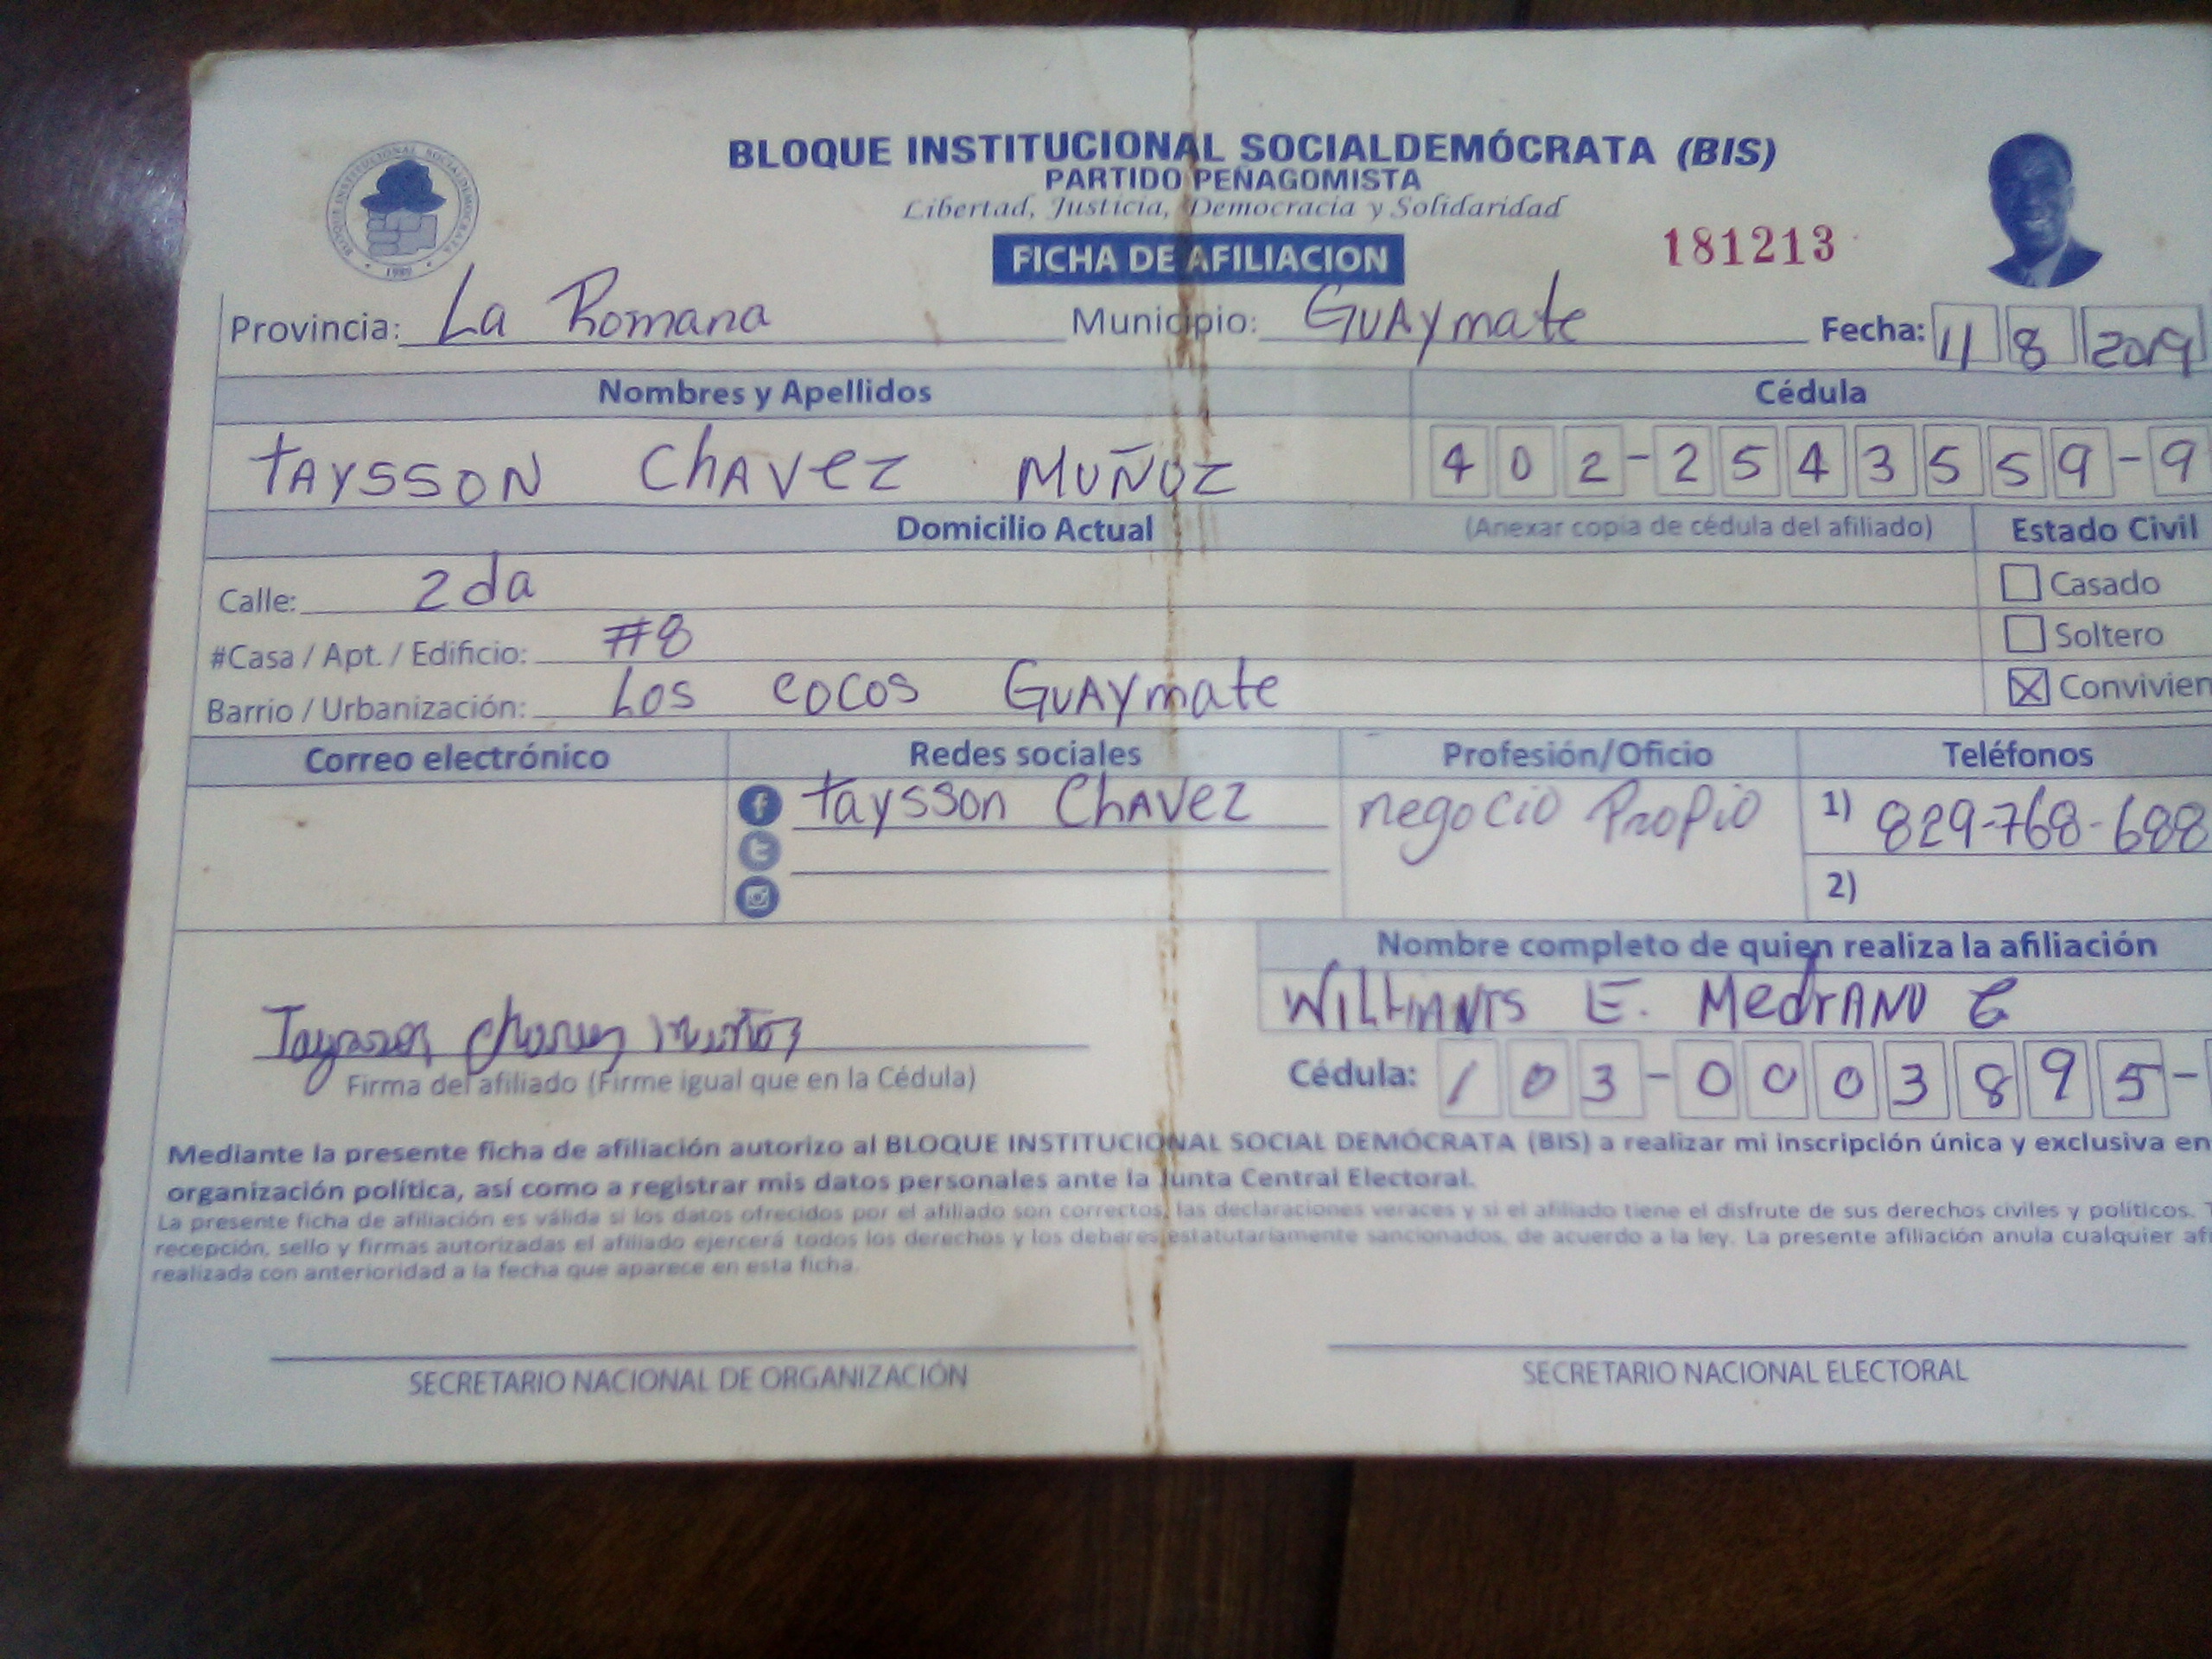 BLOQUE INSTITUCIONAL SOCIALDEMÓCRATA (BIS)
PARTIDO PEÑAGOMISTA
Libertad, Justicia, Democracia y Solidaridad
BLOQUE INSTITUCIONAL SOCIALDEMOCRATA
FICHA DE AFILIACION
181213
Provincia: La Romana Municipio: GUAymate Fecha: 11 8 2019
Nombres y Apellidos Cédula
tAYSSON ChAVez MUÑOZ 402-2543559-9
Domicilio Actual (Anexar copia de cédula del afiliado) Estado Civil
Calle: 2da Casado
#Casa / Apt. / Edificio: #8 Soltero
Barrio / Urbanización: Los cocos GUAymate Convivien
Correo electrónico Redes sociales Profesión/Oficio Teléfonos
taysson ChAVez negocio Propio 1) 829-768-688
2)
Nombre completo de quien realiza la afiliación
E. MedrANO
Firma del afiliado (Firme igual que en la Cédula) Cédula: 103-0003895-
Mediante la presente ficha de afiliación autorizo al BLOQUE INSTITUCIONAL SOCIAL DEMÓCRATA (BIS) a realizar mi inscripción única y exclusiva en
organización política, así como a registrar mis datos personales ante la Junta Central Electoral.
La presente ficha de afiliación es válida si los datos ofrecidos por el afiliado son correctos, las declaraciones veraces y si el afiliado tiene el disfrute de sus derechos civiles y políticos.
recepción, sello y firmas autorizadas el afiliado ejercerá todos los derechos y los deberes estatutariamente sancionados, de acuerdo a la ley. La presente afiliación anula cualquier
realizada con anterioridad a la fecha que aparece en esta ficha.
SECRETARIO NACIONAL DE ORGANIZACIÓN SECRETARIO NACIONAL ELECTORAL